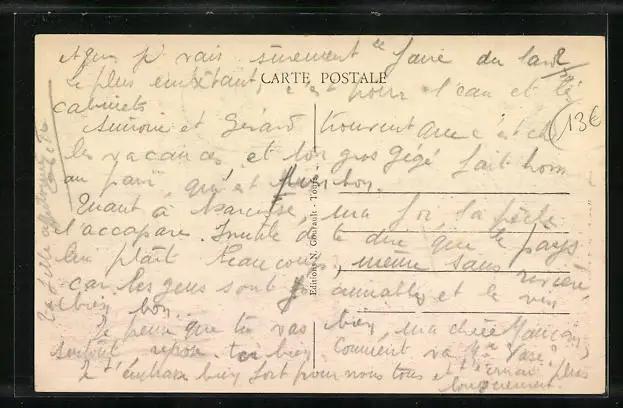 et que j' vais sûrement faire du
le plus embêtant, c'est pour l'eau et les
CARTE POSTALE
cabinets
13€
Simone et Gérard trouvent que c'est
les vacances et ton gros Gégé fait
au pain, qui est bon.
Quant à Narcisse, ma foi, la pêche
l'accapare. Inutile de te dire que le pays
lui plaît beaucoup, même sans rivière,
car les gens sont aimables et le vin
bien bon.
Je pense que tu vas bien, ma chère
surtout repose-toi bien. Comment va Mme
Je t'embrasse bien fort pour nous tous et
longuement.
Editions N. Gourault - Tours
Ta fille